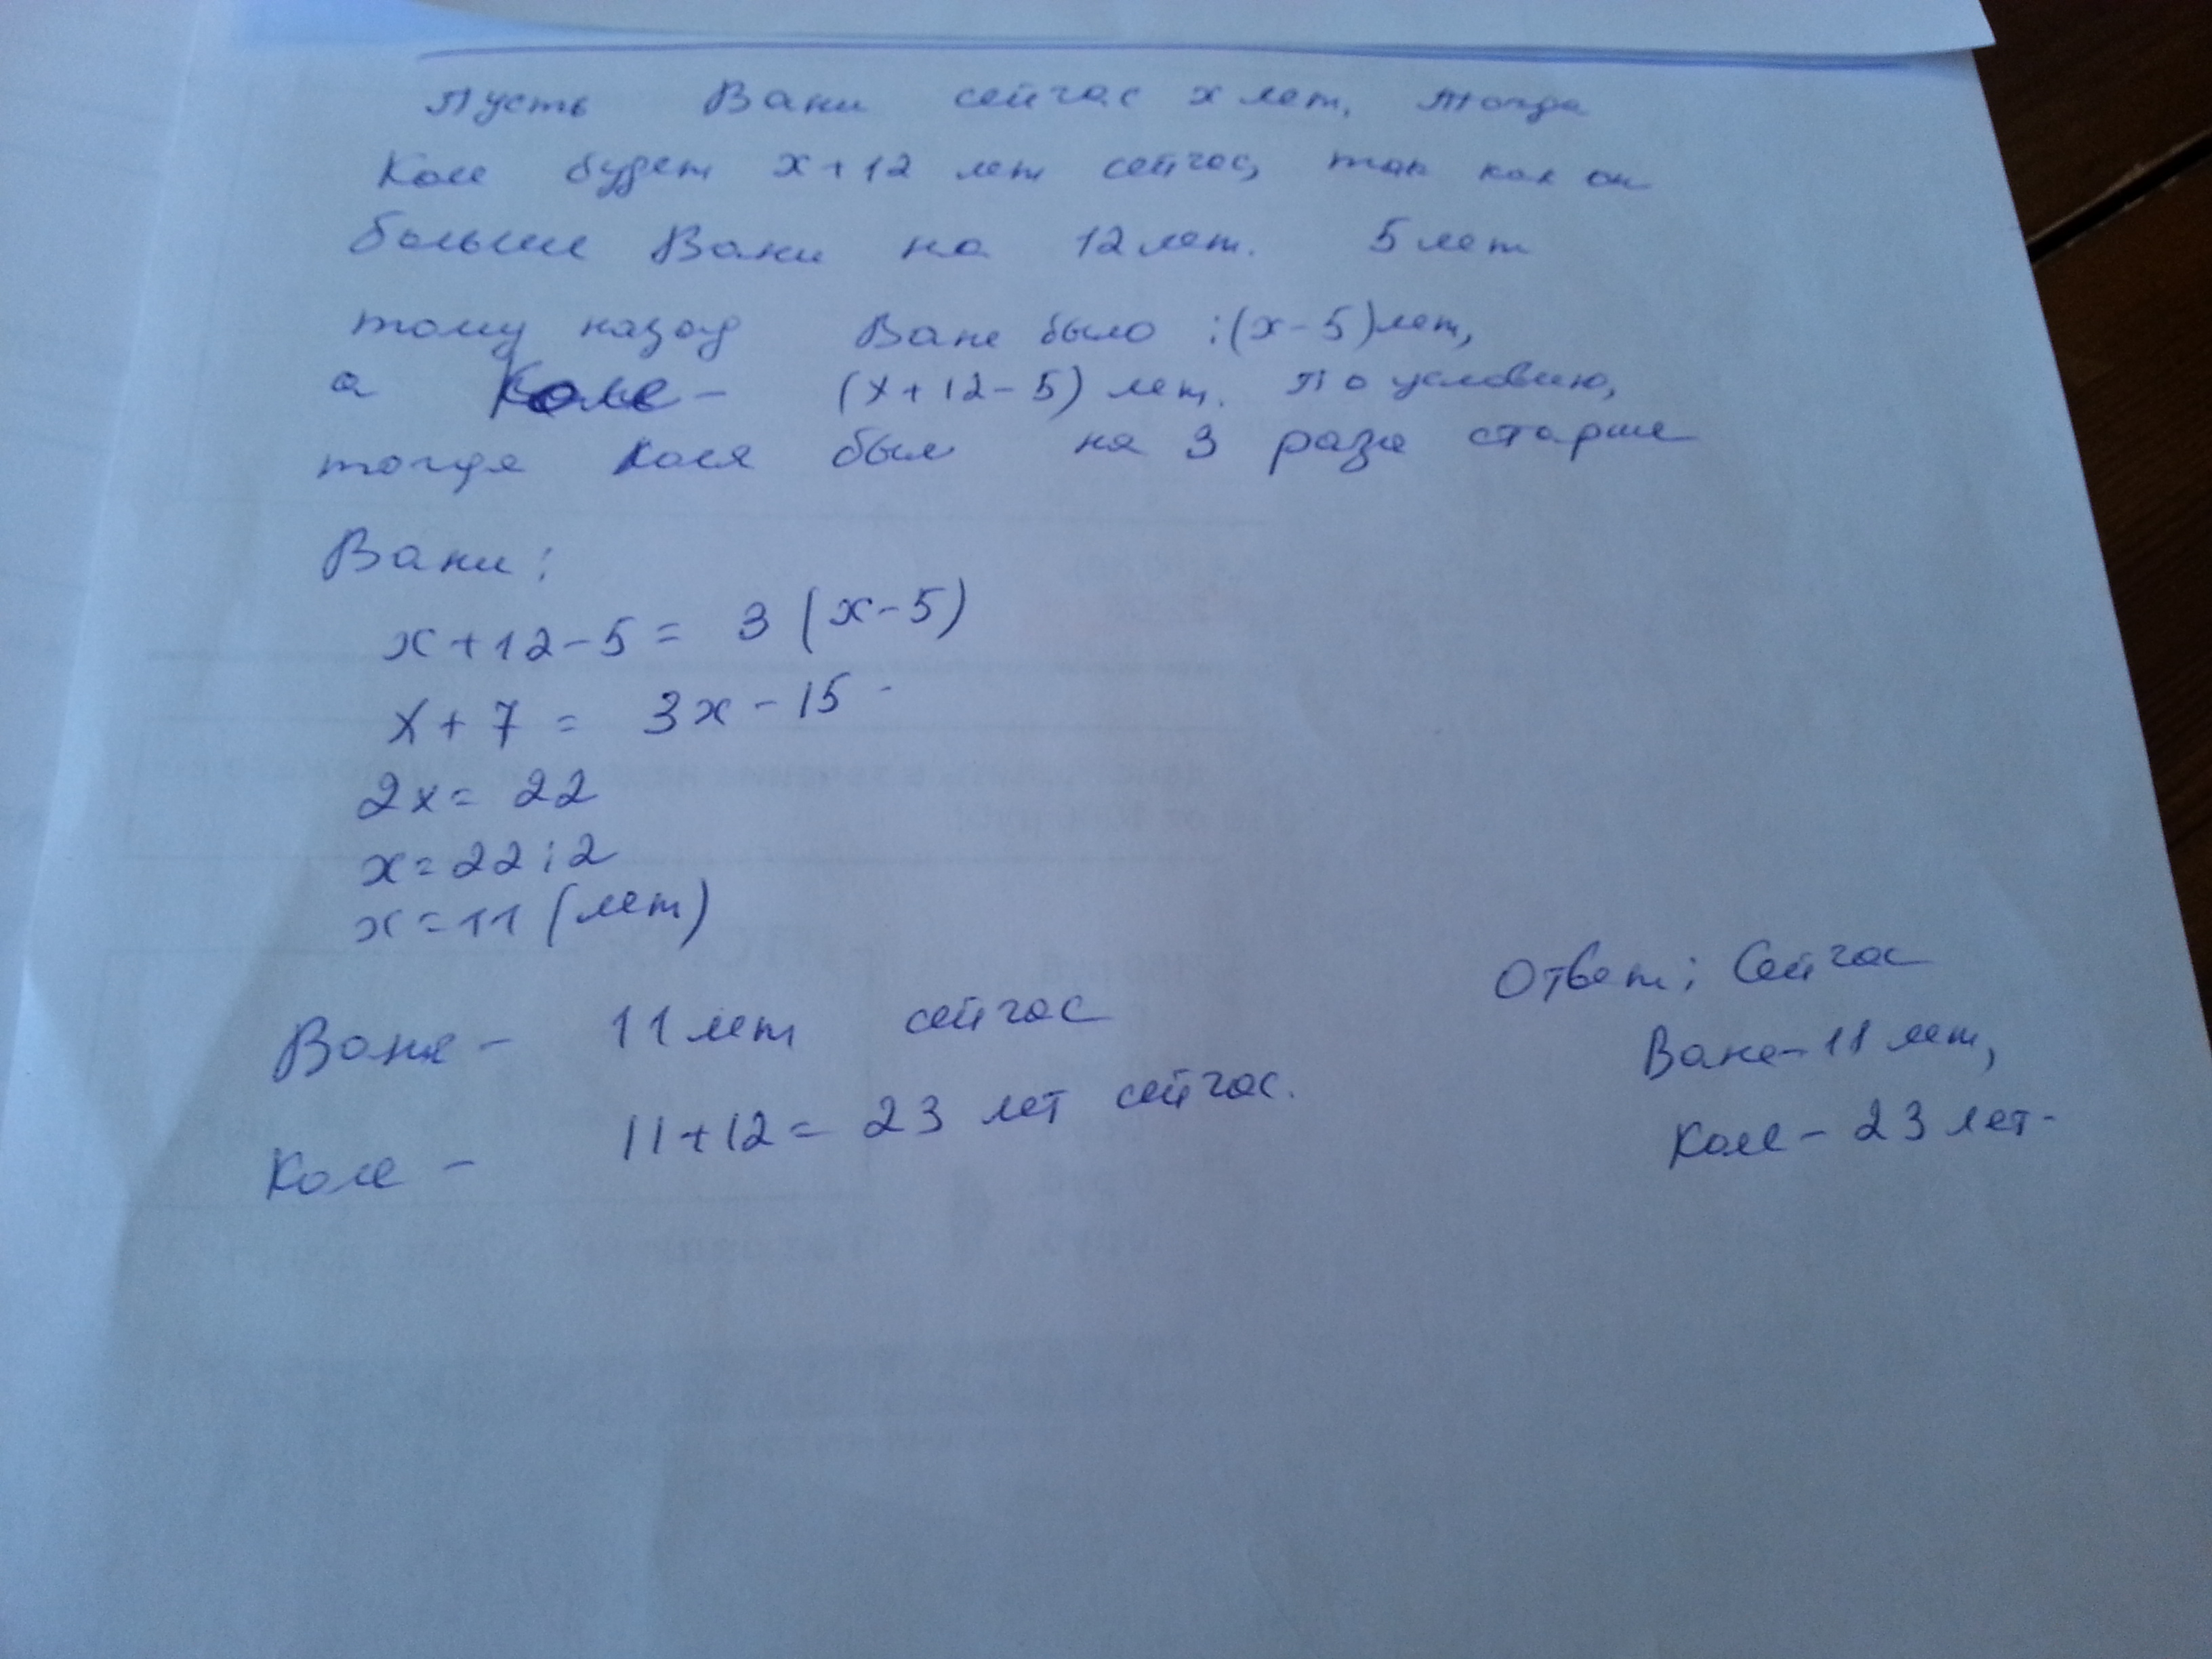 Пусть Вани сейчас x лет, тогда
Коле будет x+12 лет сейчас, так как он
больше Вани на 12 лет. 5 лет
тому назад Ване было :(x-5) лет,
а Коле- (x+12-5) лет. По условию,
тогда Коля был на 3 раза старше
Вани:
x+12-5= 3(x-5)
x+7 = 3x-15
2x= 22
x=22:2
x=11 (лет)
Ваня- 11 лет сейчас
Коле - 11+12= 23 лет сейчас.
Ответ: Сейчас
Ване-11 лет,
Коле-23 лет.